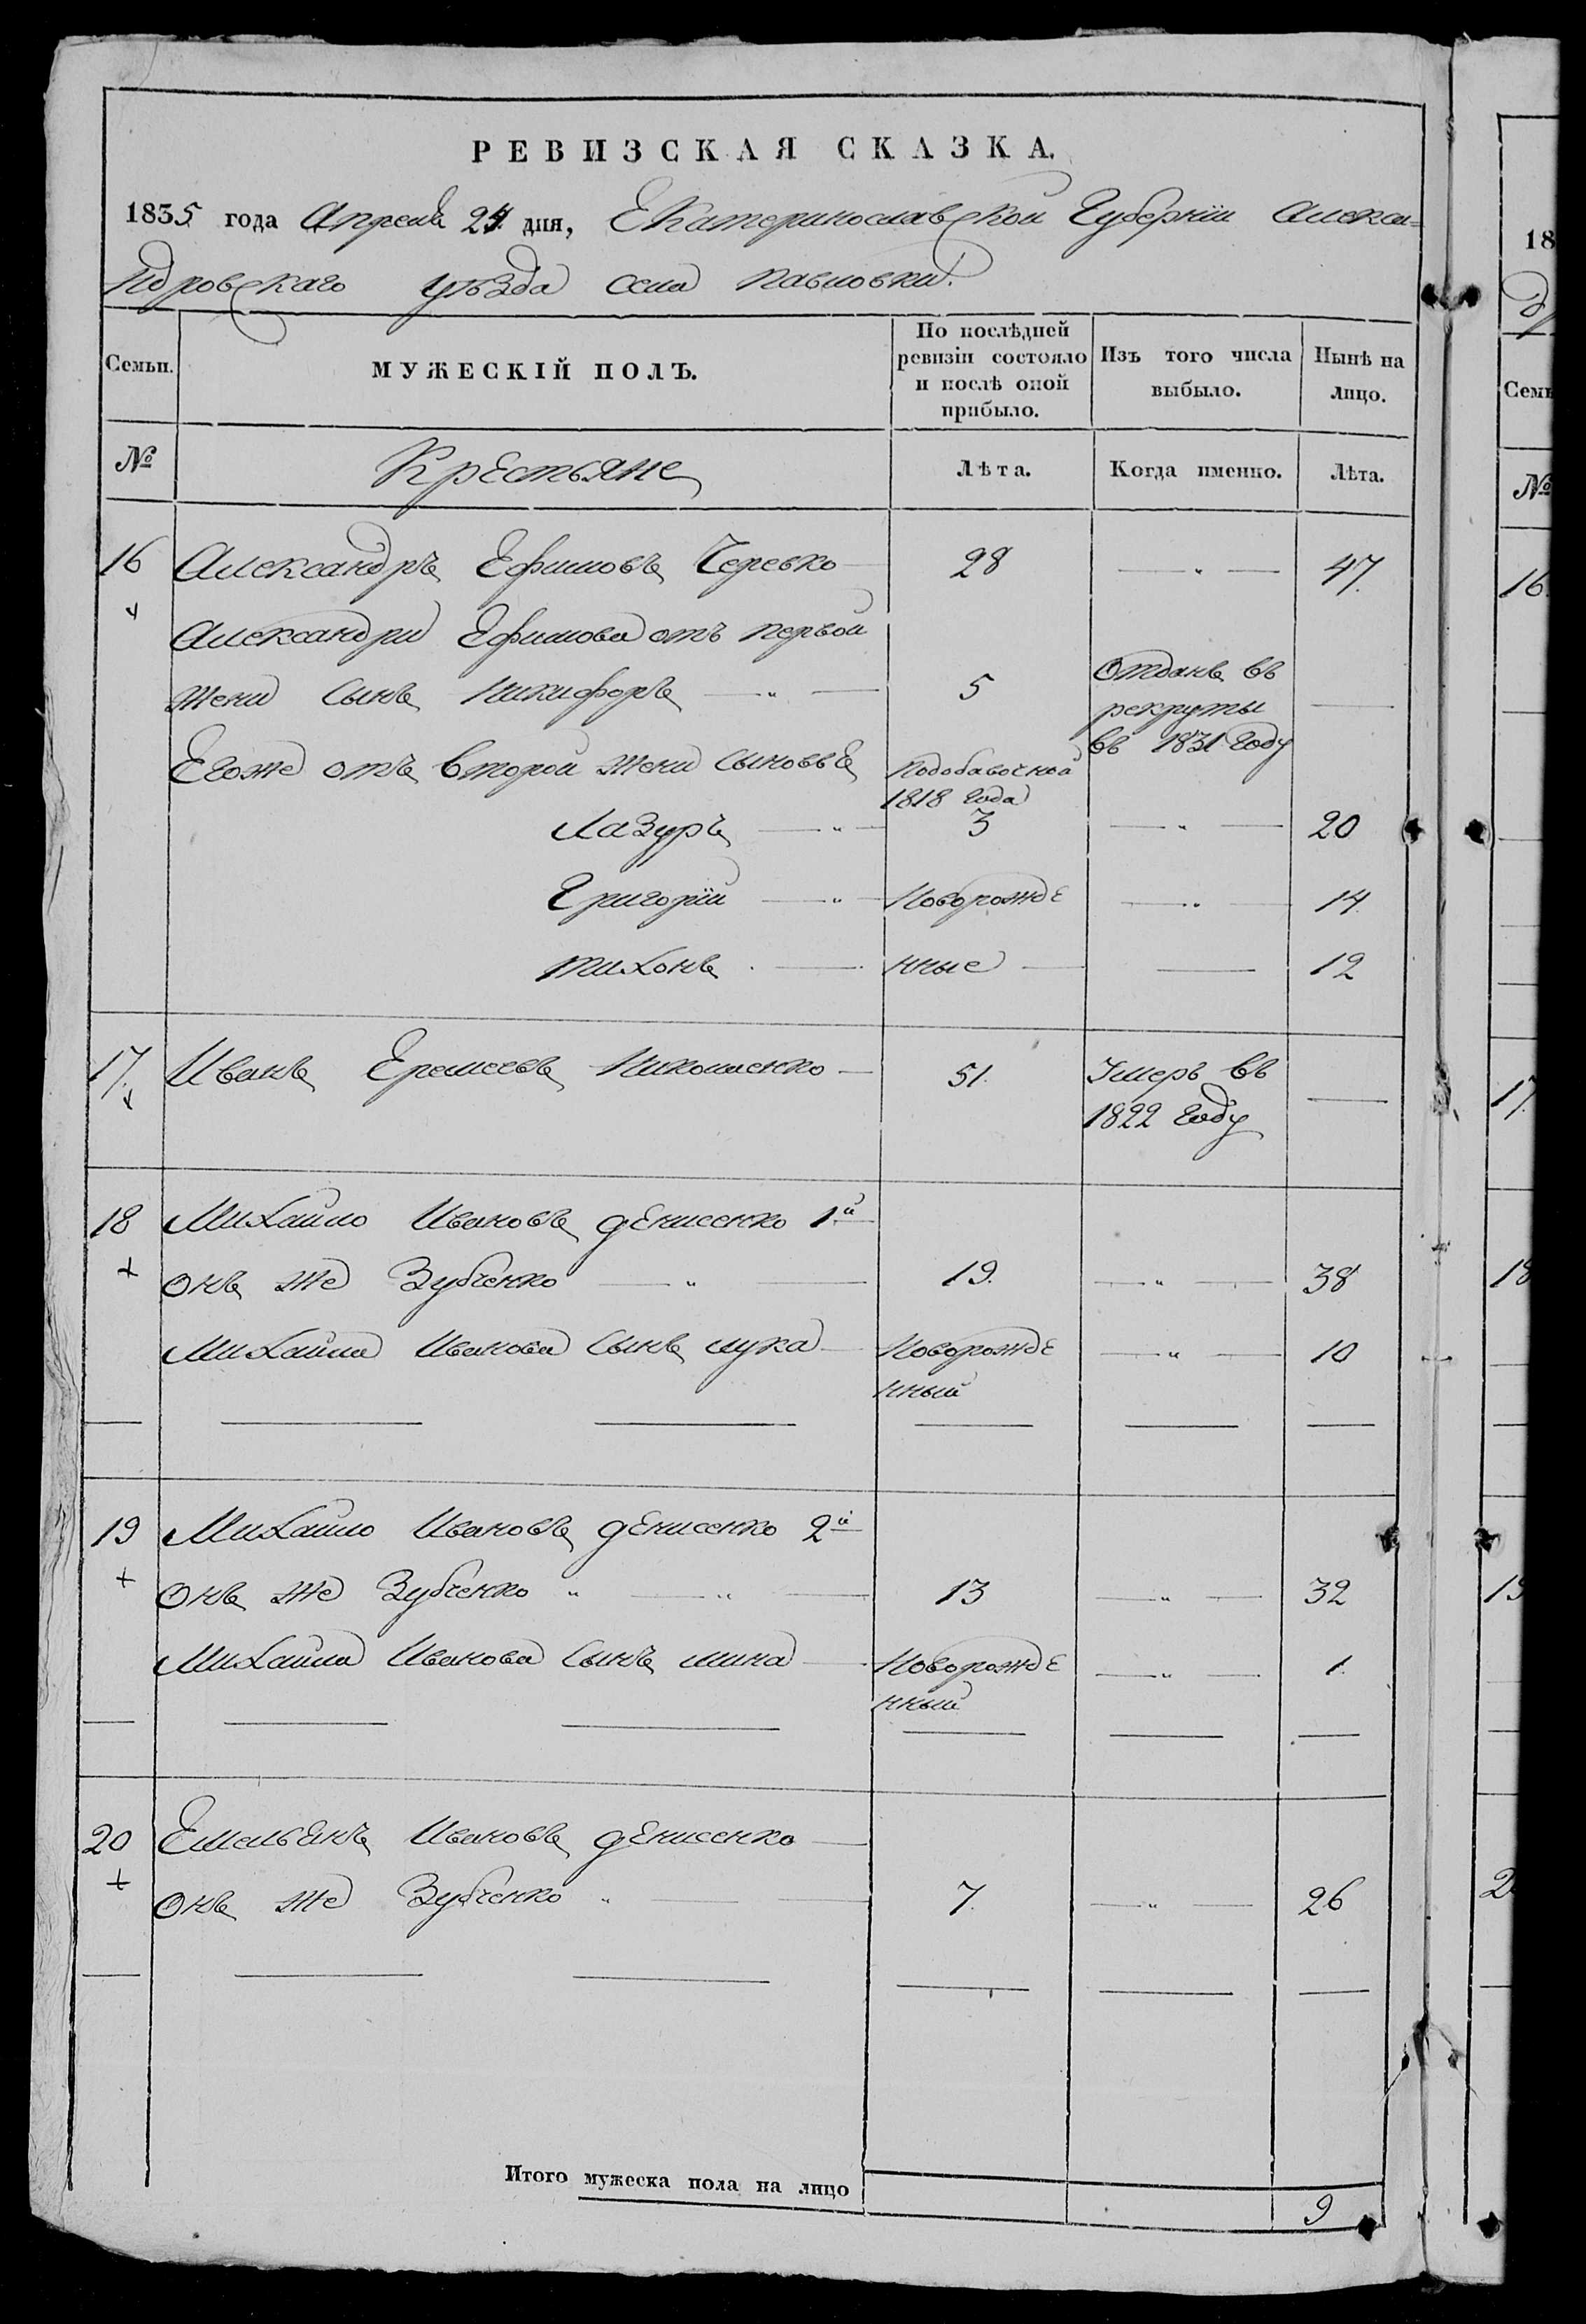 РЕВИЗСКАЯ СКАЗКА.
1835 года Апреля 24 дня, Екатеринославской Губернiи Алекса=
ндровскаго уѣзда села Павловки.
Семьи. МУЖЕСКІЙ ПОЛЪ. По послѣдней ревизіи состояло и послѣ оной прибыло. Изъ того числа выбыло. Нынѣ на лицо.
№ Крестьяне Лѣта. Когда именно. Лѣта.
16 Александръ Ефимовъ Черевко 28 — " — 47.
Александра Ефимова отъ первой
жени сынъ Никифоръ — " — 5 Отданъ въ рекруты въ 1831 году —
Егоже отъ второй жени сыновья подобавочной 1818 года
Лазуръ — " — 3 — " — 20
Григорiй — " — Новорожде — " — 14
Тихонъ . — нные — — 12
17. Иванъ Еремеевъ Николаенко — 51. Умеръ въ
1822 году —
18 Михайло Ивановъ Денисенко 1й
онъ же Зубченко — " — 19. — " — 38
Михайла Иванова сынъ Лука — Новорожде — " — 10
нный
19 Михайло Ивановъ Денисенко 2й
онъ же Зубченко " — " — 13 — " — 32
Михайла Иванова сынъ Мина — Новорожде — " — 1.
нный
20 Емельянъ Ивановъ Денисенко —
онъ же Зубченко " — 7. — " — 26
Итого мужеска пола на лицо 9
18
Семь
№
16.
17.
18
19
2